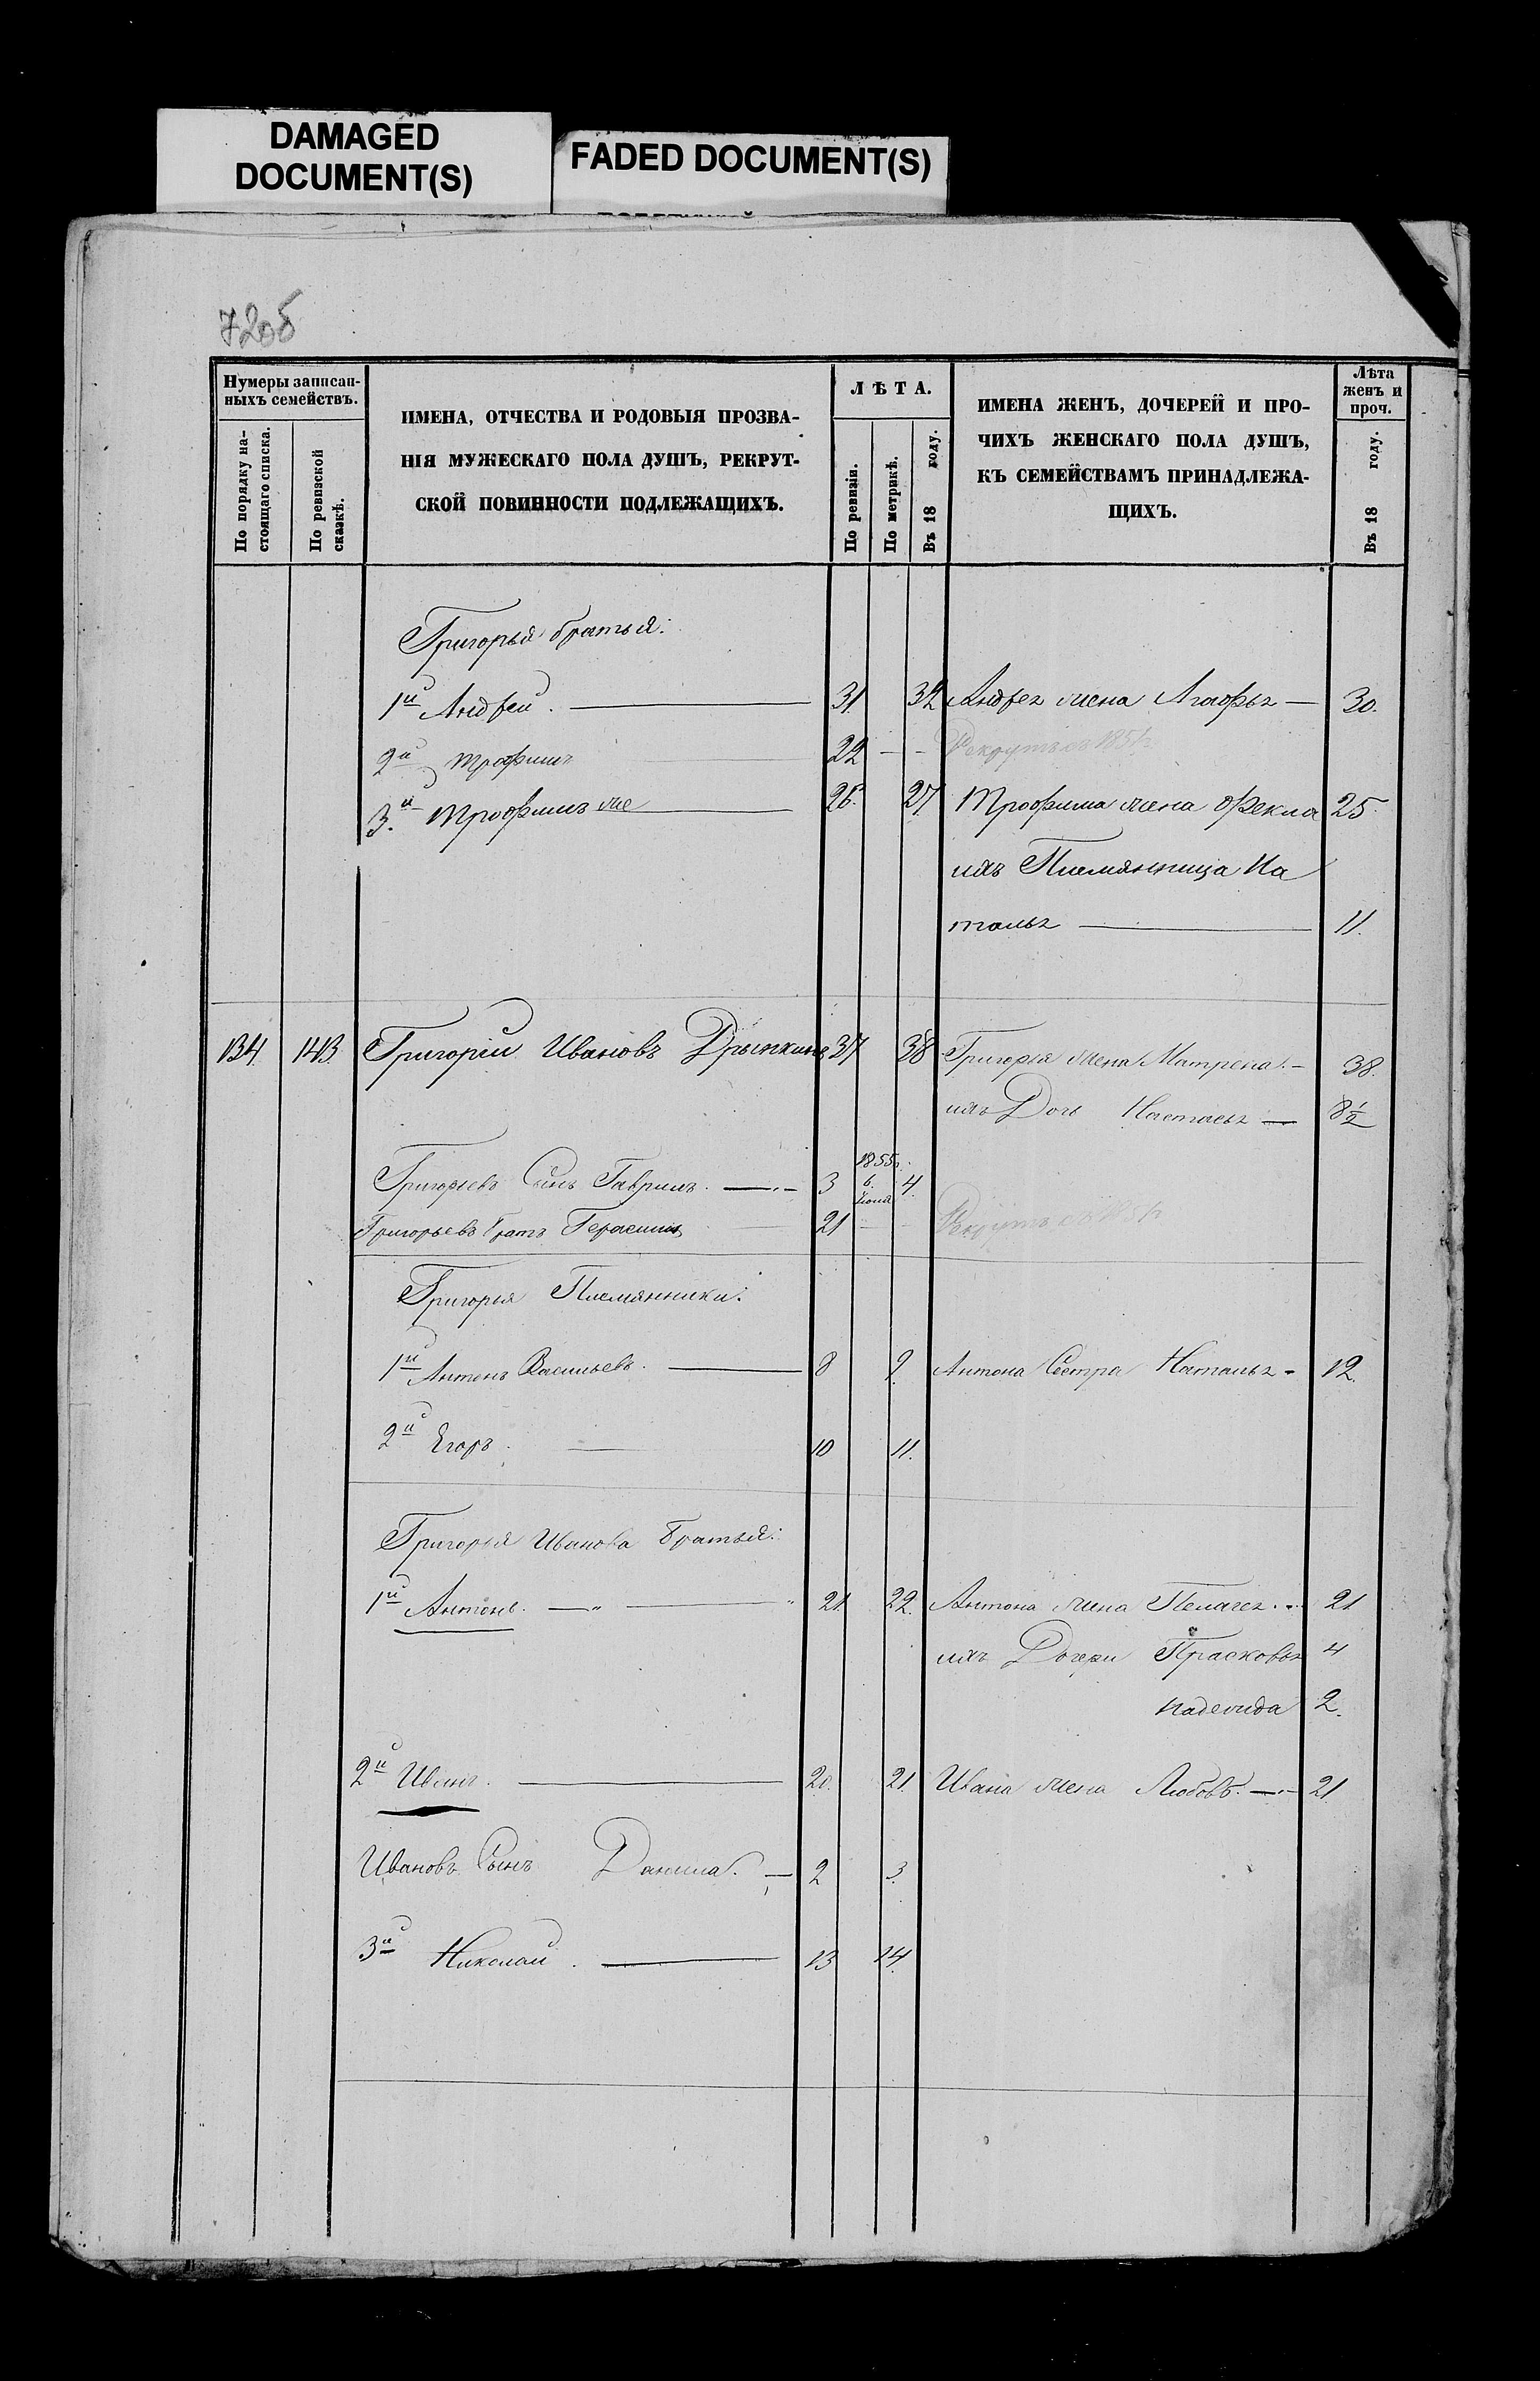 DAMAGED
DOCUMENT(S)
FADED DOCUMENT(S)
720б
Нумеры записан-
ныхъ семействъ.
По порядку на-
стоящаго списка.
По ревизской
сказкѣ.
ИМЕНА, ОТЧЕСТВА И РОДОВЫЯ ПРОЗВА-
НІЯ МУЖЕСКАГО ПОЛА ДУШЪ, РЕКРУТ-
СКОЙ ПОВИННОСТИ ПОДЛЕЖАЩИХЪ.
ЛѢТА.
По ревизіи.
По метрикѣ.
Въ 18 году.
ИМЕНА ЖЕНЪ, ДОЧЕРЕЙ И ПРО-
ЧИХЪ ЖЕНСКАГО ПОЛА ДУШЪ,
КЪ СЕМЕЙСТВАМЪ ПРИНАДЛЕЖА-
ЩИХЪ.
Лѣта
женъ и
проч.
Въ 18 году.
Григорья братья:
1й Андрей. — 31. 32 Андрея жена Агафья — 30.
2й Трофимъ 22 — — Рекрутъ съ 185
3.й Трофимъ же — 26. 27 Трофима жена Фекла 25.
ихъ Племянница На
талья — 11.
134. 143 Григорій Ивановъ 37 38 Григорья жена Матрена. — 38.
ихъ Дочь Настасья — 8½
Григорьевъ Сынъ Гаврилъ. — 3 1855г. 6. Іюня 4.
Григорьевъ братъ Герасимъ 21 — — Рекрутъ съ 185
Григорья Племянники:
1й Антонъ Васильевъ. — 8 9. Антона Сестра Наталья - 12.
2й Егоръ. — 10 11.
Григорья Иванова братья:
1й Антонъ. — „ — „ 21. 22. Антона жена Пелагея. 21
ихъ Дочери Прасковья 4
Надежда 2.
2й Иванъ. — 20. 21. Ивана жена Любовь. — 21
Ивановъ Сынъ Данила. — 2 3.
3й Николай. — 13 14.